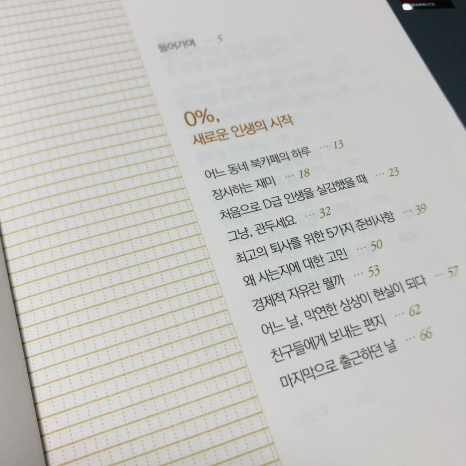 들어가며 … 5
0%,
새로운 인생의 시작
어느 동네 북카페의 하루 … 13
장사하는 재미 … 18
처음으로 D급 인생을 실감했을 때 … 23
그냥, 관두세요 … 32
최고의 퇴사를 위한 5가지 준비사항 … 39
왜 사는지에 대한 고민 … 50
경제적 자유란 뭘까 … 53
어느 날, 막연한 상상이 현실이 되다 … 57
친구들에게 보내는 편지 … 62
마지막으로 출근하던 날 … 66